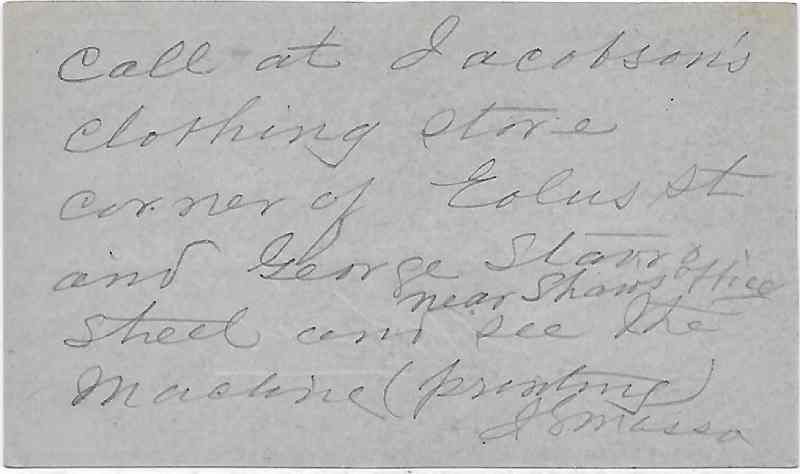 Call at Jacobson's
clothing store
corner of Eolus St
and George
near Shaws office
and see the
Machine (printing)